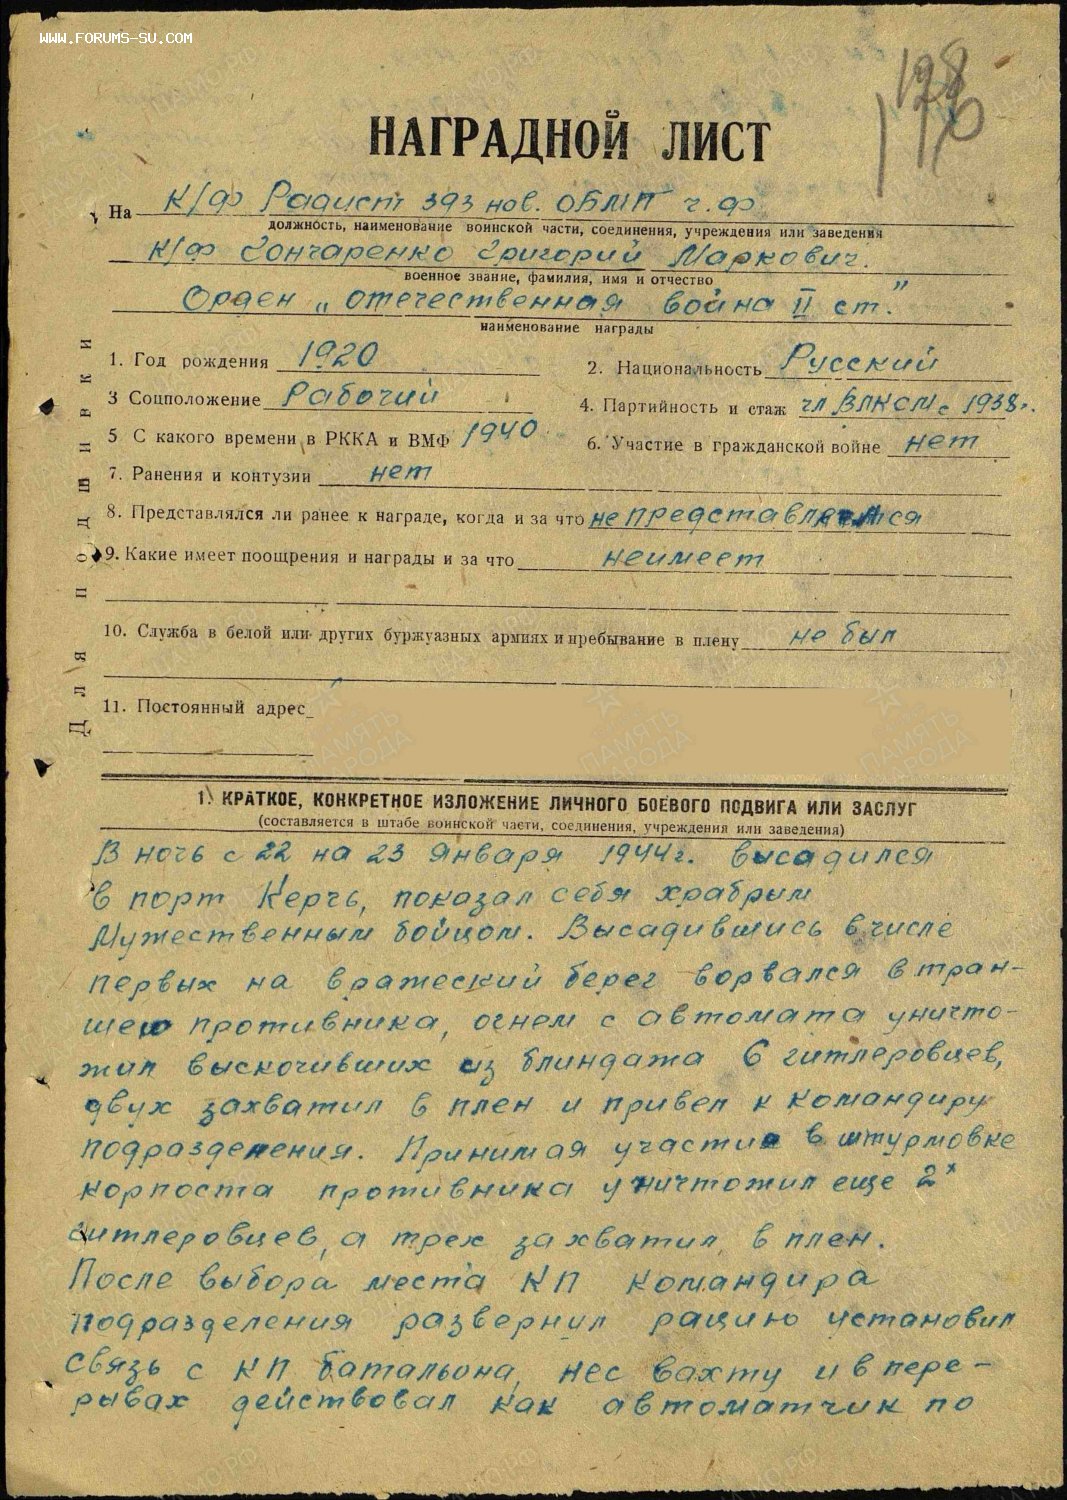 www.forums-su.com
198
НАГРАДНОЙ ЛИСТ
На К/Ф Радист 393 нов. ОБМП ч.ф
должность, наименование воинской части, соединения, учреждения или заведения
К/Ф Гончаренко Григорий Маркович.
военное звание, фамилия, имя и отчество
Орден „отечественная война II ст."
наименование награды
1. Год рождения 1920
2. Национальность Русский
3 Соцположение Рабочий
4. Партийность и стаж чл ВЛКСМ с 1938г.
5 С какого времени в РККА и ВМФ 1940
6. Участие в гражданской войне нет
7. Ранения и контузии нет
8. Представлялся ли ранее к награде, когда и за что не представлялся
9. Какие имеет поощрения и награды и за что неимеет
10. Служба в белой или других буржуазных армиях и пребывание в плену не был
11. Постоянный адрес
Для подшивки
1. КРАТКОЕ, КОНКРЕТНОЕ ИЗЛОЖЕНИЕ ЛИЧНОГО БОЕВОГО ПОДВИГА ИЛИ ЗАСЛУГ
(составляется в штабе воинской части, соединения, учреждения или заведения)
В ночь с 22 на 23 января 1944г. высадился
в порт Керчь, показал себя храбрым
Мужественным бойцом. Высадившись в числе
первых на вражеский берег ворвался в тран-
шею противника, огнем с автомата уничто-
жил выскочивших из блиндажа 6 гитлеровцев,
двух захватил в плен и привел к командиру
подразделения. Принимая участие в штурмовке
корпоста противника уничтожил еще 2х
гитлеровцев, а трех захватил в плен.
После выбора места КП командира
подразделения развернул рацию установил
связь с КП батальона, нес вахту и в пере-
рывах действовал как автоматчик по